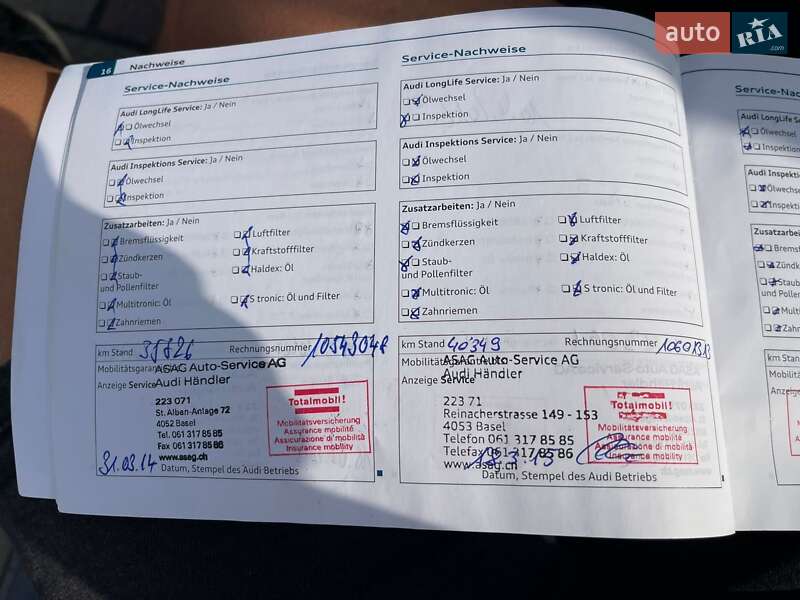 auto RIA .com
16 Nachweise
Service-Nachweise
Audi LongLife Service: Ja / Nein
Ölwechsel
Inspektion
Audi Inspektions Service: Ja / Nein
Ölwechsel
Inspektion
Zusatzarbeiten: Ja / Nein
Bremsflüssigkeit
Luftfilter
Zündkerzen
Kraftstofffilter
Staub-
und Pollenfilter
Haldex: Öl
Multitronic: Öl
S tronic: Öl und Filter
Zahnriemen
km Stand
Rechnungsnummer
ASAG Auto-Service AG
Anzeige Service
Audi Händler
223 071
St. Alban-Anlage 72
4052 Basel
Tel. 061 317 85 85
Fax 061 317 85 86
www.asag.ch
Totalmobil!
Mobilitätsversicherung
Assurance mobilité
Assicurazione di mobilità
Insurance mobility
31.03.14
Datum, Stempel des Audi Betriebs
Service-Nachweise
Audi LongLife Service: Ja / Nein
Ölwechsel
Inspektion
Audi Inspektions Service: Ja / Nein
Ölwechsel
Inspektion
Zusatzarbeiten: Ja / Nein
Bremsflüssigkeit
Luftfilter
Zündkerzen
Kraftstofffilter
Staub-
und Pollenfilter
Haldex: Öl
Multitronic: Öl
S tronic: Öl und Filter
Zahnriemen
km Stand 40349
Rechnungsnummer
ASAG Auto-Service AG
Anzeige Service
Audi Händler
223 71
Reinacherstrasse 149 - 153
4053 Basel
Telefon 061 317 85 85
Telefax 061 317 85 86
www.asag.ch
Totalmobil!
Mobilitätsversicherung
Assurance mobilité
Assicurazione di mobilità
Insurance mobility
Datum, Stempel des Audi Betriebs
Service-Nachw
Audi LongLife Se
Ölwechsel
Inspektion
Audi Inspektio
Ölwechsel
Inspektion
Zusatzarbei
Bremsflü
Zündker
Staub-
und Poller
Multit
Zahnri
km Stand
Mobilitäts
Anzeige S